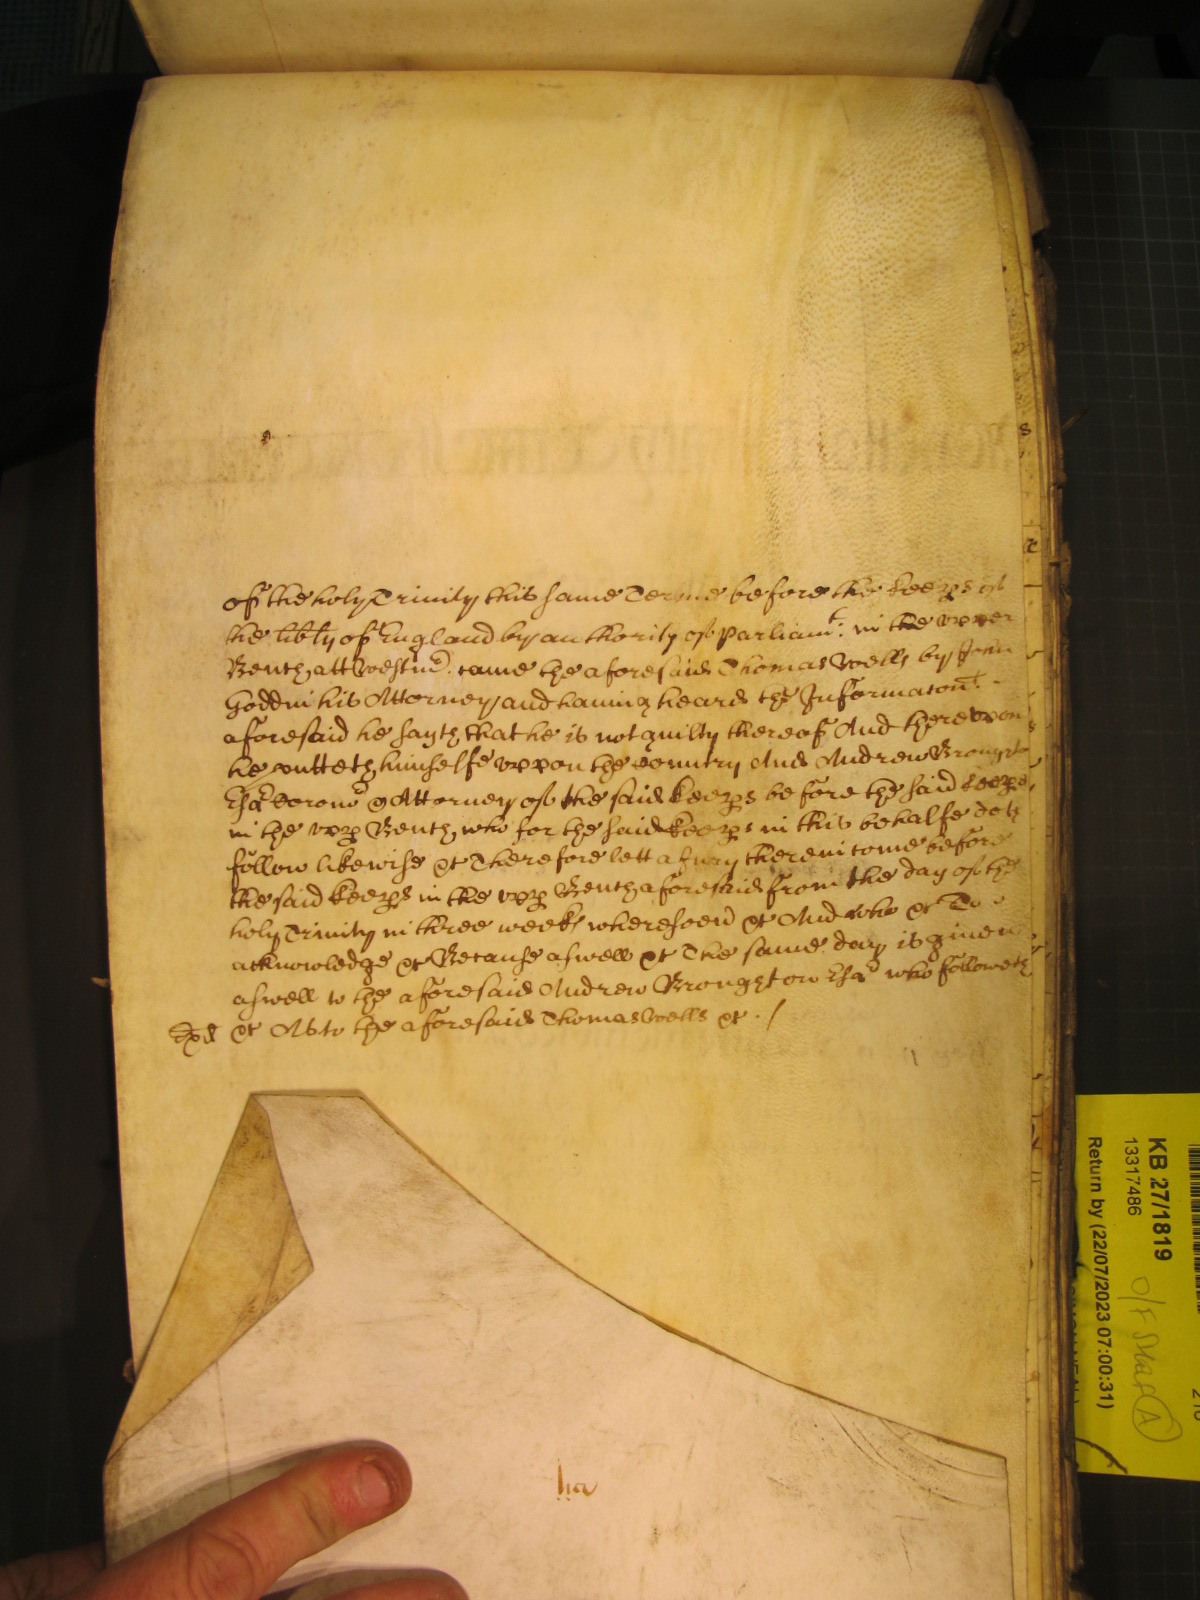 of the holy Trinity this same Terme before the keeps of
the lib̃ty of England by authority of Parliamt: in the upper
Bench att Westm̃. came the aforesaid Thomas Wells by John
Goddin his Attorney, and haveing heard the Informacon
aforesaid he sayth that he is not guilty thereof And thereupon
he putteth himselfe uppon the Country And Andrew Broughton
Esq̃ Coron̄ & Attorney of the said keeps before the said keeps
in the upp Bench, who for the said keeps in this behalfe doth
follow likewise &c Therefore lett a Jury therein come before
the said keeps in the upp Bench aforesaid from the day of the
holy Trinity in three weeks wheresoev̄ &c And who &c To
acknowledge &c Because aswell &c The same day is given
aswell to the aforesaid Andrew Broughton Esq̃ who followeth
&c As to the aforesaid Thomas Wells &c . /
KB 27/1819
13317486
Return by (22/07/2023 07:00:31)
O/F
A